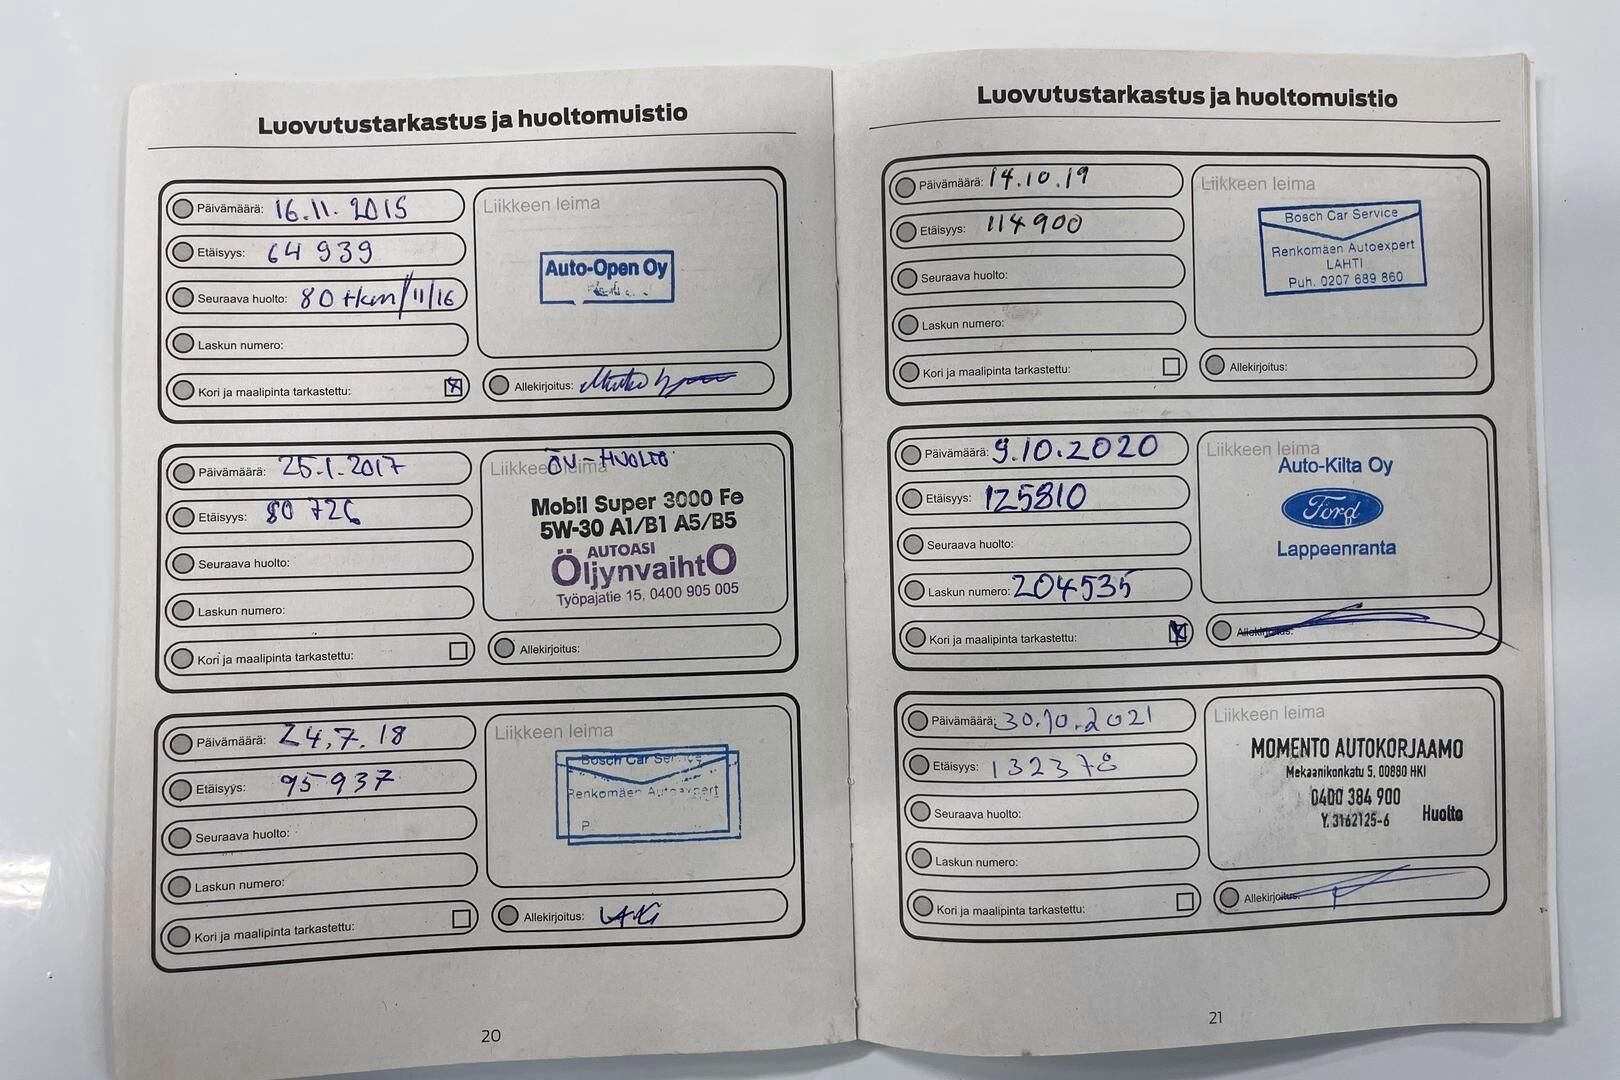 Luovutustarkastus ja huoltomuistio
Päivämäärä: 16.11.2015
Etäisyys: 64 939
Seuraava huolto: 80 tkm/11/16
Laskun numero:
Kori ja maalipinta tarkastettu: X
Liikkeen leima
Auto-Open Oy
Allekirjoitus:
Päivämäärä: 25.1.2017
Etäisyys: 80 726
Seuraava huolto:
Laskun numero:
Kori ja maalipinta tarkastettu:
Liikkeen leima
ÖV-HUOLTO
Mobil Super 3000 Fe
5W-30 A1/B1 A5/B5
AUTOASI
ÖljynvaihtO
Työpajatie 15, 0400 905 005
Allekirjoitus:
Päivämäärä: 24.7.18
Etäisyys: 95 937
Seuraava huolto:
Laskun numero:
Kori ja maalipinta tarkastettu:
Liikkeen leima
Bosch Car Service
Renkomäen Autoexpert
P
Allekirjoitus:
20
Luovutustarkastus ja huoltomuistio
Päivämäärä: 14.10.19
Etäisyys: 114900
Seuraava huolto:
Laskun numero:
Kori ja maalipinta tarkastettu:
Liikkeen leima
Bosch Car Service
Renkomäen Autoexpert
LAHTI
Puh. 0207 689 860
Allekirjoitus:
Päivämäärä: 9.10.2020
Etäisyys: 125810
Seuraava huolto:
Laskun numero: 204535
Kori ja maalipinta tarkastettu: X
Liikkeen leima
Auto-Kilta Oy
Ford
Lappeenranta
Allekirjoitus:
Päivämäärä: 30.10.2021
Etäisyys: 132378
Seuraava huolto:
Laskun numero:
Kori ja maalipinta tarkastettu:
Liikkeen leima
MOMENTO AUTOKORJAAMO
Mekaanikonkatu 5, 00880 HKI
0400 384 900
Y. 3162125-6 Huolto
Allekirjoitus:
21